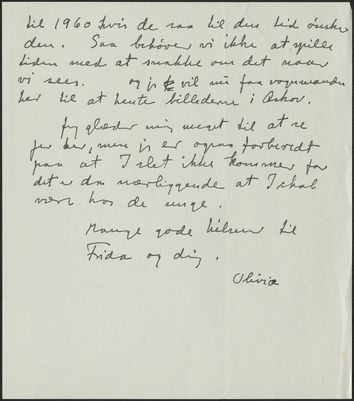 til 1960 hvis de saa til den tid ønsker
den. Saa behøver vi ikke at spille
tiden med at snakke om det naar
vi sees. og jeg vil nu faa vognmanden
her til at hente billederne i Askov.
Jeg glæder mig meget til at se
jer her, men jeg er ogsaa forberedt
paa at I slet ikke kommer for
det er da nærliggende at I skal
være hos de unge.
Mange gode hilsner til
Frida og dig.
Olivia